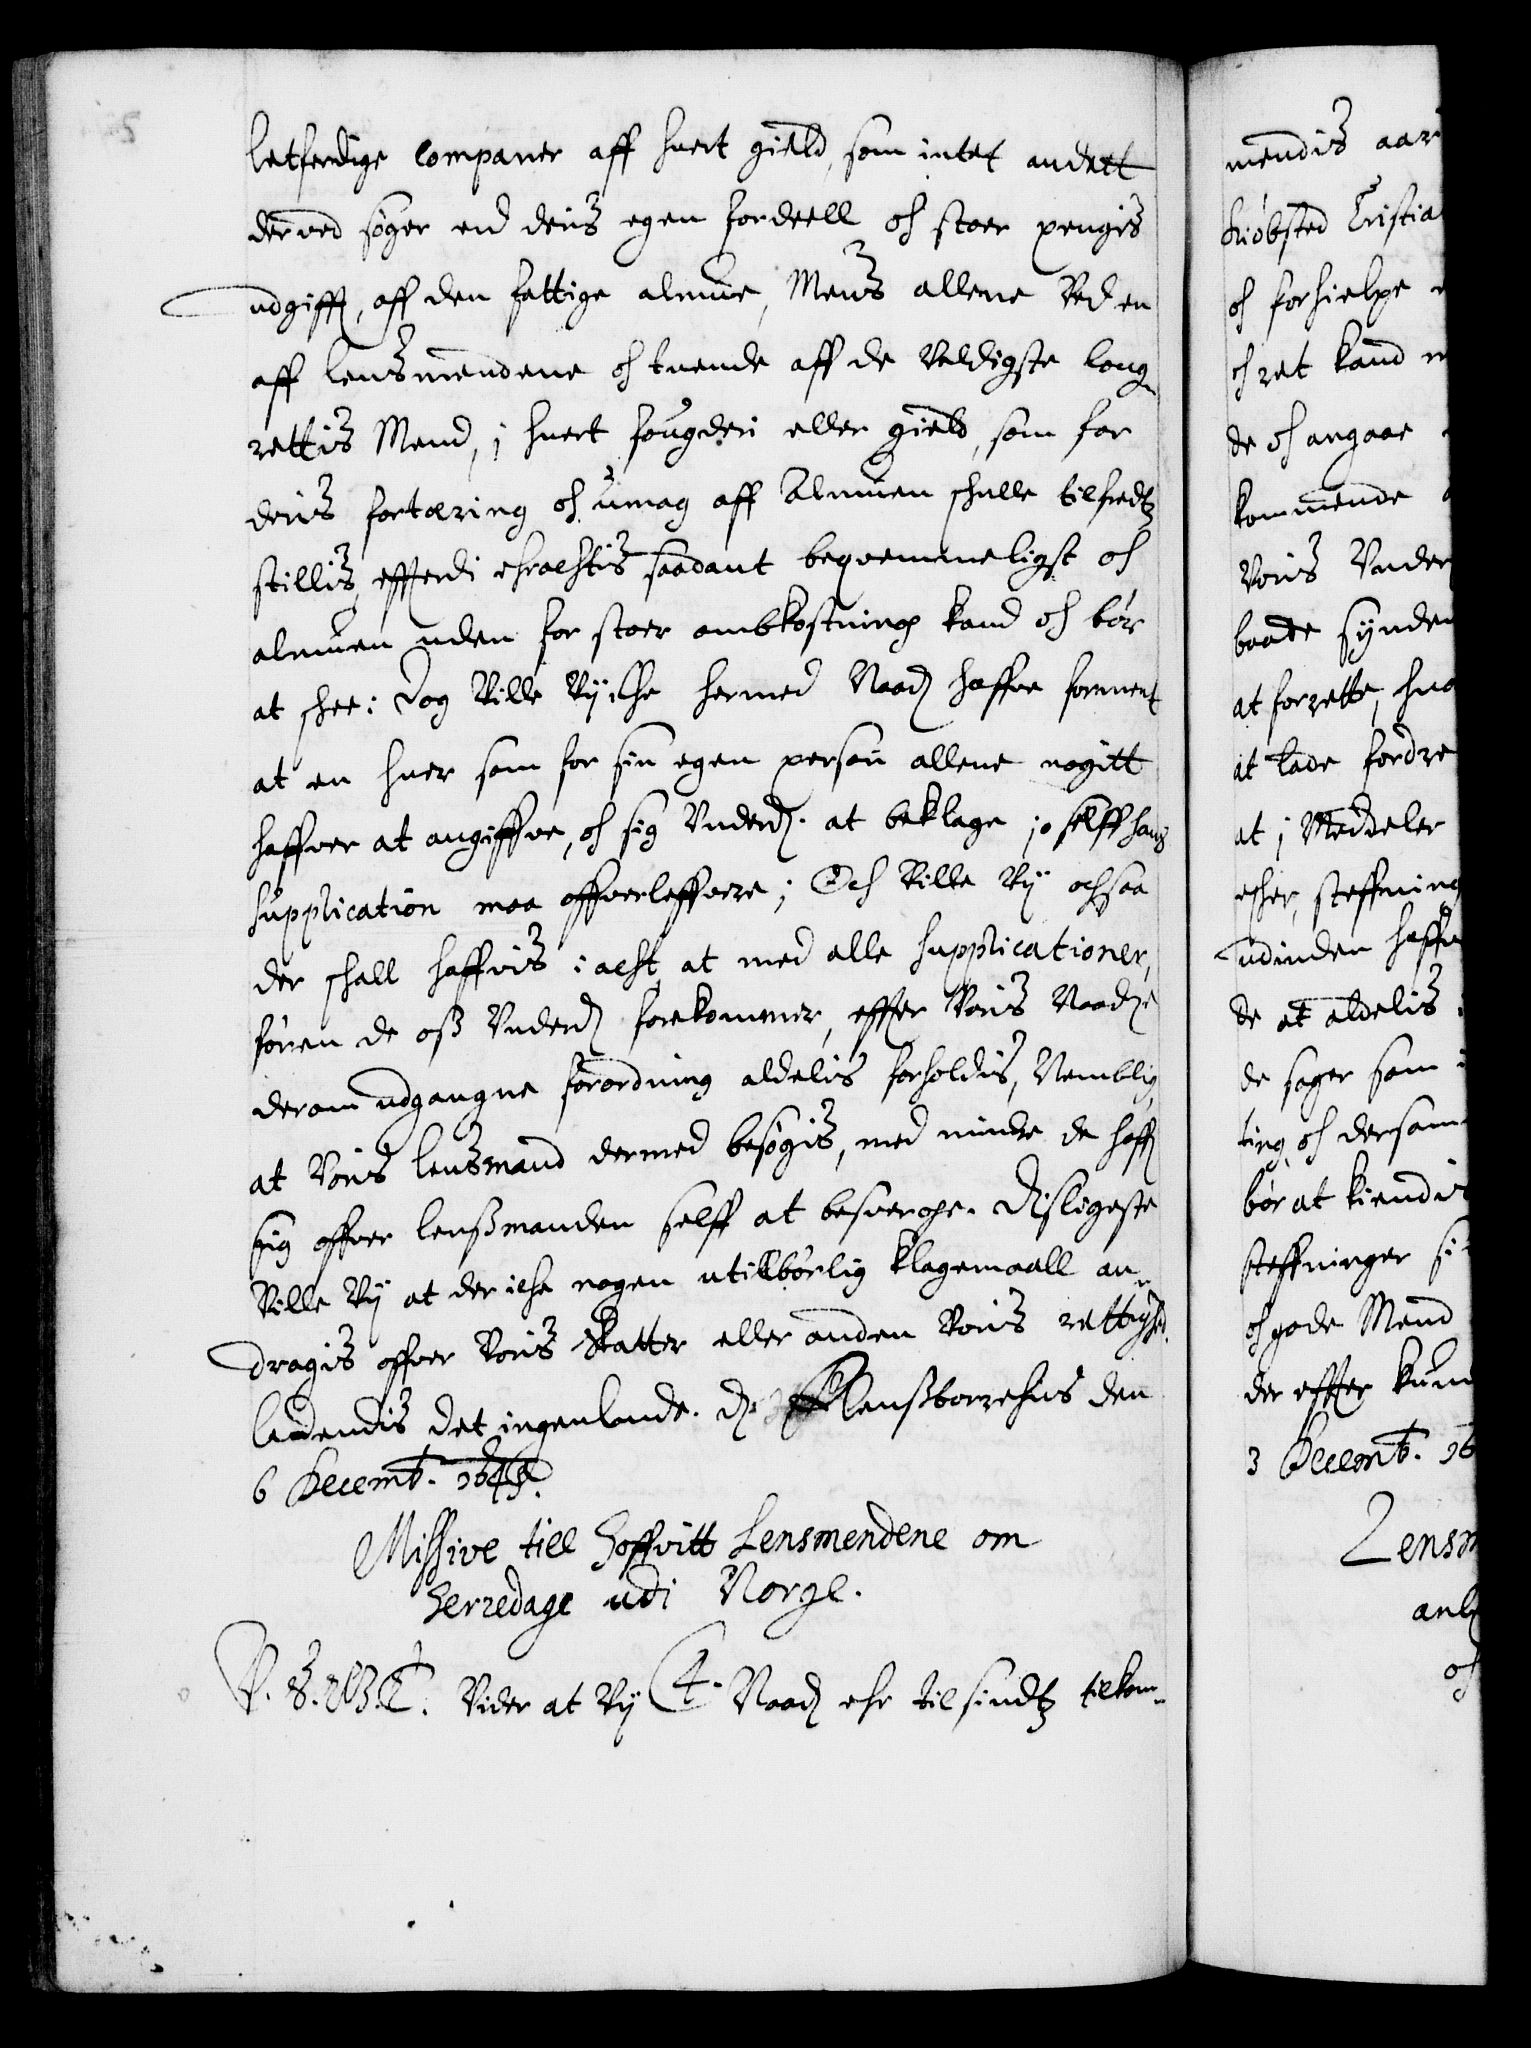 letferdige Companer aff huert gield, som intet andett
derved søger end deris egen fordeell oc stoer pengis
udgifft, aff den fattige almue, Mens allene Ved en
aff lensmendene oc tuende aff de Veldigste laug
rettis Mend, i huert fougderi eller gield, som for
deris fortæring oc umag aff Almuen schulle tilfredtz
stillis, efftterdi eractis saadant beqvemmeligst oc
almuen uden for stoer ombkostning kand oc bør
at schee: Dog Ville Vy iche hermed Naad haffve forment
at en huer som for sin egen person allene nogitt
haffver at angiffve, oc sig Underd. at beklage jo selff hans
supplication maa offverleffvere; Och Ville Vy ochsaa
der schall haffvis i acht at med alle supplicationer,
føren de oss Underd forekommer, effter Voris Naadge
derom udgangne forordning aldelis forholdis, Nemblig,
at Voris lensmand dermed besøgis, med mindre de haff
sig offver lenssmanden selff at besverge. Disligeste
Ville Vy at der iche nogen utilbørlig klagemaall an-
dragis offver Voris skatter eller anden Voris rettighed.
ladendis det ingenlunde. D. Flenssborrehus den
6 Decemb. 1648.
Missive till Hoffvitt Lensmendene om
herredage udi Norge.
V. S. G. T. Vider at Vy Naad ehr til sindtz tilkom-
mendis aar
kiøbsted Cristia
oc forhielpe
oc ret kand
de oc angaae
kommende
Voris Under
baade synden
at forrette, hua
at lade fordre
at i Meddeler
eher, steffning
udinden haffu
de at aldelis
de sager som
ting, oc dersom
bør at kiendis
steffninger
oc gode Mend
der effter kun
3 Decemb. 16
Lensm
anl
oc